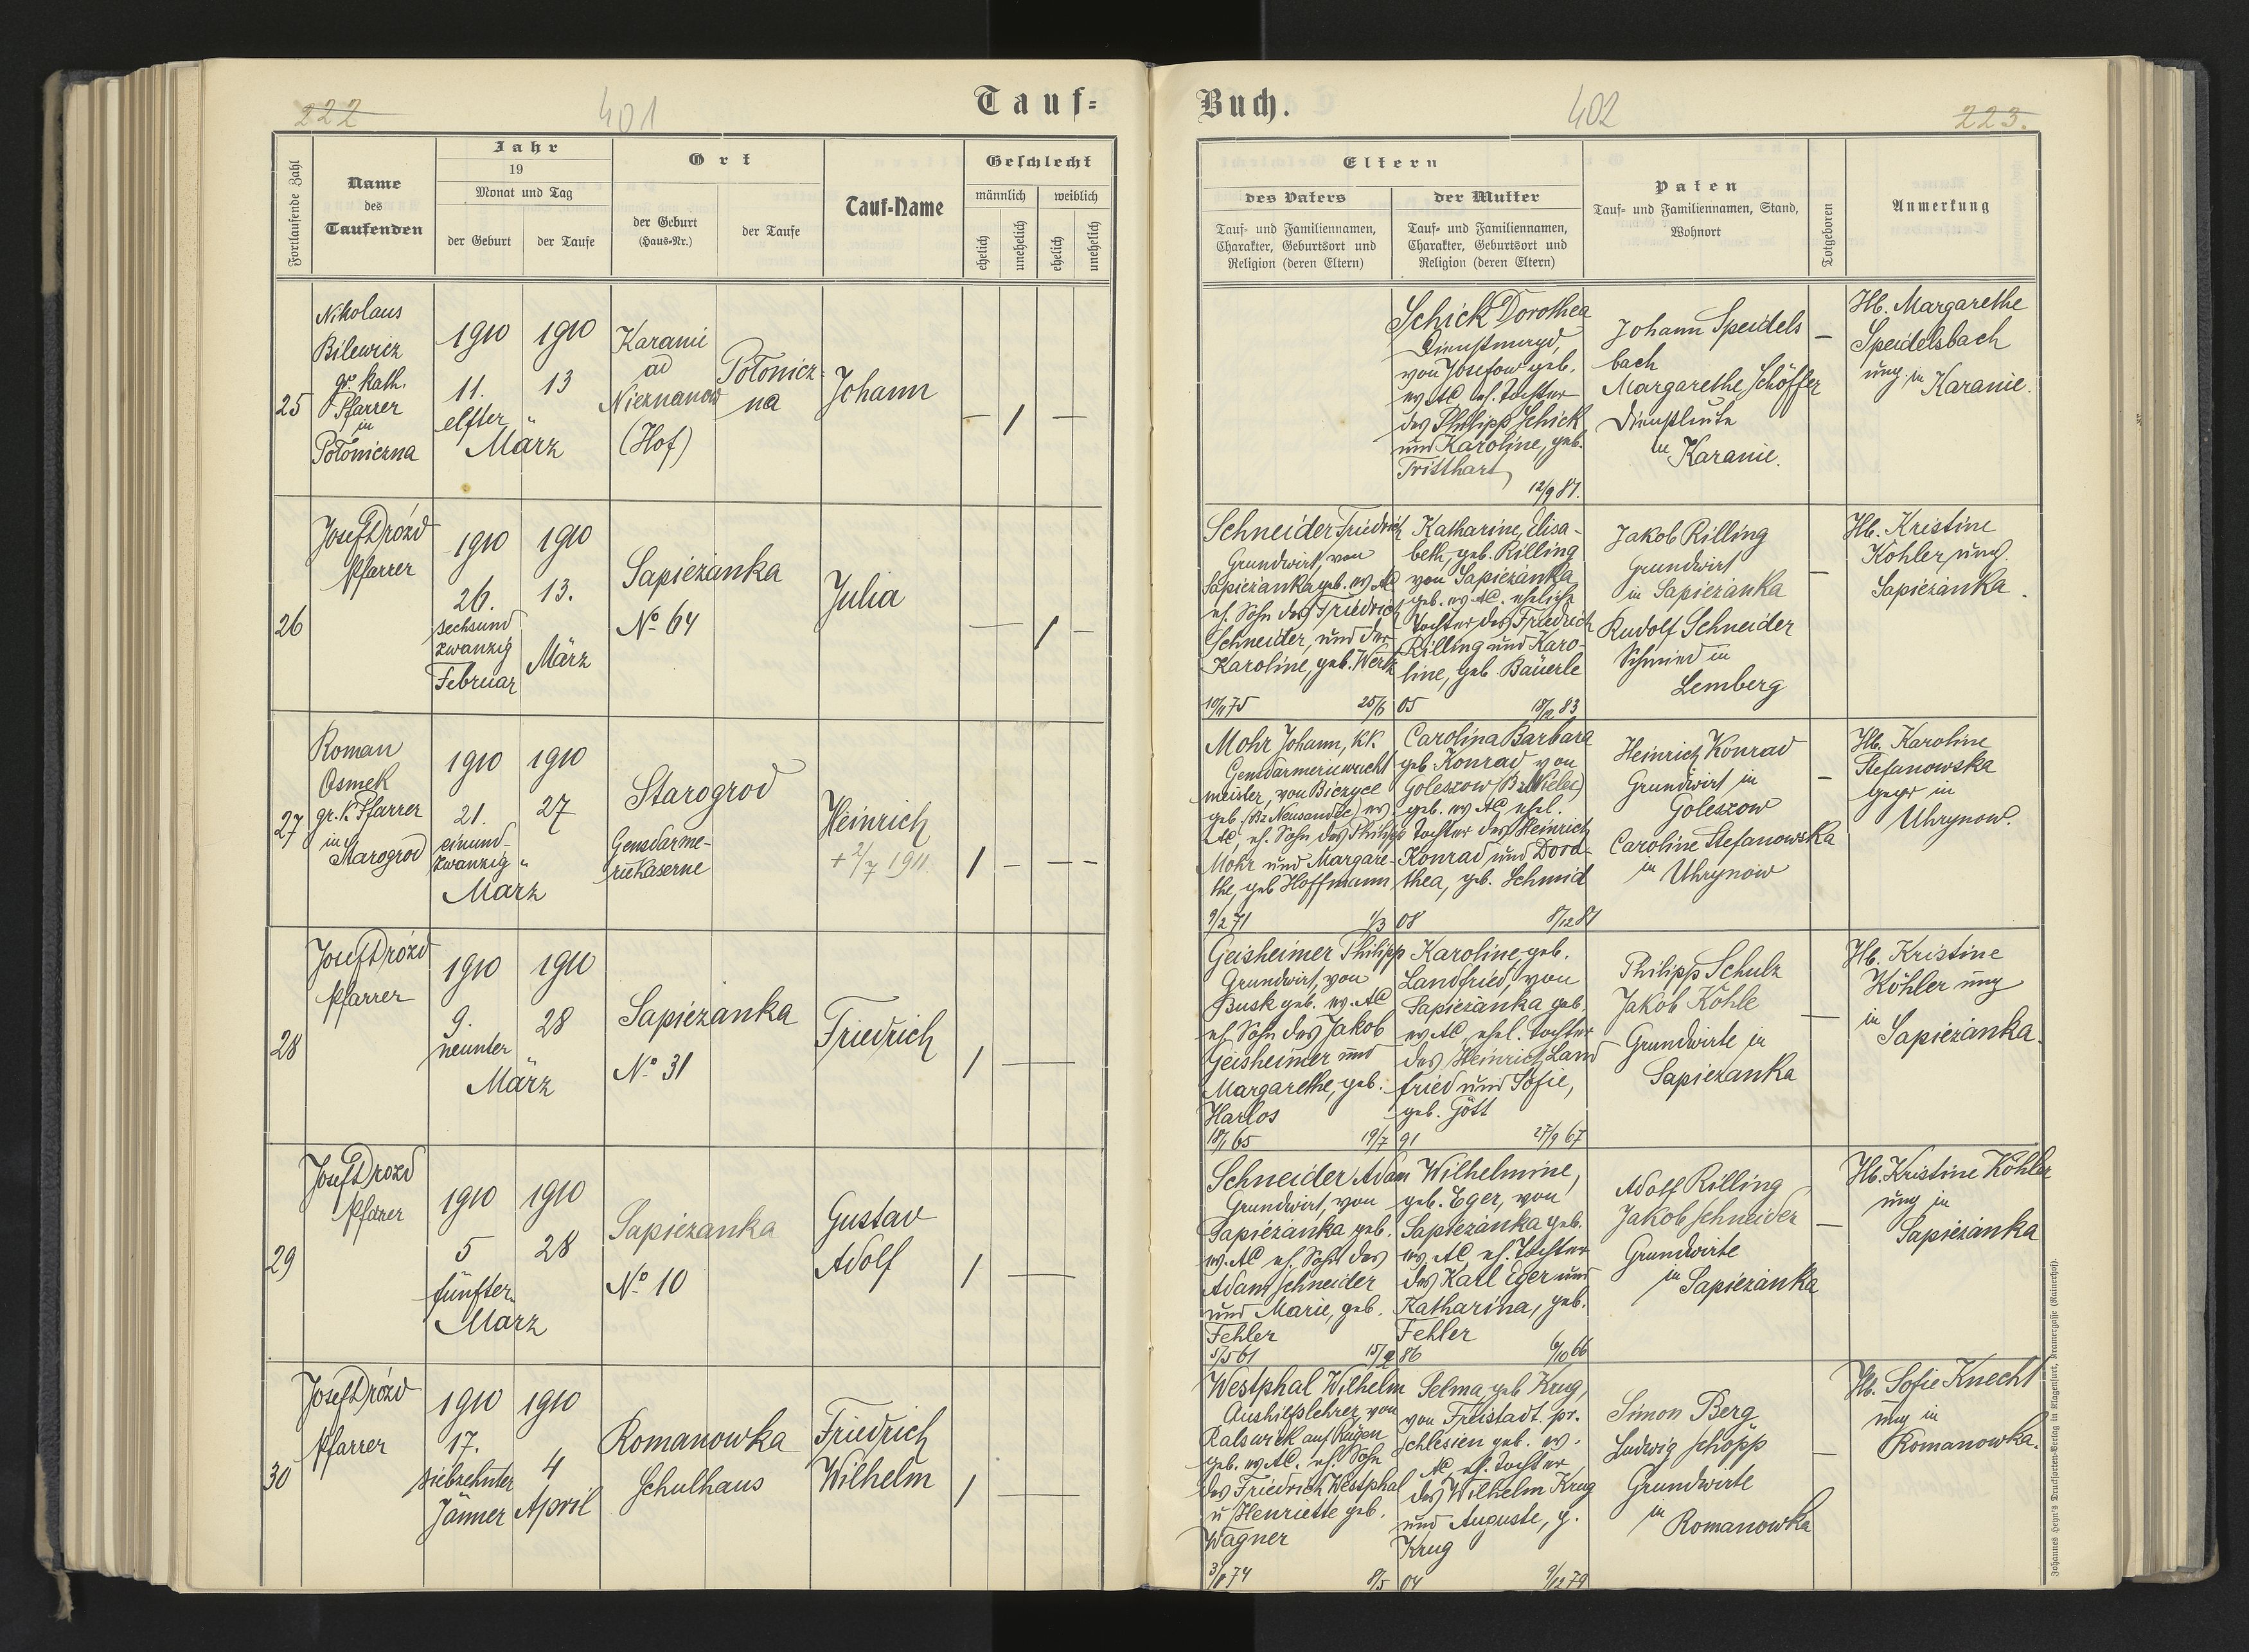 222
401
Tauf=
Fortlaufende Zahl
Name
des
Taufenden
Jahr
19
Monat und Tag
der Geburt
der Taufe
Ort
der Geburt
(Haus=Nr.)
der Taufe
Tauf=Name
Geschlecht
männlich
weiblich
ehelich
unehelich
ehelich
unehelich
25
Nikolaus
Bilewicz
gr. kath.
Pfarrer
in
Połoniczna
1910
11.
elfter
März
1910
13
"
Karanie
ad
Nieznanow
(Hof)
Połonicz=
na
Johann
— / —
26
Josef Drózd
Pfarrer
1910
26.
sechsund
zwanzig
Februar
1910
13.
März
Sapieżanka
No 64
Julia
— / —
27
Roman
Osmek
gr. k. Pfarrer
in
Starogrod
1910
21.
einund-
zwanzig
März
1910
27
"
Starogrod
Gensdarme-
riekaserne
Heinrich
+ 2/7 1911.
/ — — —
28
Josef Drózd
Pfarrer
1910
9.
neunter
März
1910
28
Sapieżanka
No 31
Friedrich
/ —
29
Josef Drozd
Pfarrer
1910
5
fünfter
März
1910
28
Sapiezanka
No 10
Gustav
Adolf
/ —
30
Josef Drózd
Pfarrer
1910
17.
siebzehnter
Jänner
1910
4
April
Romanowka
Schulhaus
Friedrich
Wilhelm
/ —
Buch.
402
223.
Eltern
des Vaters
Tauf= und Familiennamen,
Charakter, Geburtsort und
Religion (deren Eltern)
der Mutter
Tauf= und Familiennamen,
Charakter, Geburtsort und
Religion (deren Eltern)
Paten
Tauf= und Familiennamen, Stand,
Wohnort
Totgeboren
Anmerkung
Schick Dorothea
Dienstmagd,
von Josefow geb.
ev AC eh. Tochter
des Philipp Schick
und Karoline, geb.
Tristhart
12/9 87.
Johann Speidels
bach
Margarethe Schöffer
Dienstleute
in Karanie.
—
Hb. Margarethe
Speidelsbach
ung. in Karanie.
Schneider Friedrich
Grundwirt, von
Sapieżanka geb. ev. AC
eh. Sohn des Friedrich
Schneider, und der
Karoline, geb. Werk
25/6
Katharine, Elisa-
beth, geb. Rilling
von Sapieżanka
geb. ev. AC. eheliche
Tochter des Friedrich
Rilling und Karo-
line, geb Bäuerle
05
Jakob Rilling
Grundwirt
in Sapieżanka
Rudolf Schneider
Schmied in
Lemberg
—
Hb. Kristine
Köhler ung.
Sapieżanka.
Mohr Johann, kk.
Gensdarmeriewacht
meister, von Biczyce
geb. (Bz Neusandec) ev
AC, eh. Sohn des Philipp
Mohr und Margare-
the, geb Hoffmann
9/2 71 1/3
Carolina Barbara
geb Konrad von
Goleszow (Bz Mielec)
geb. ev AC ehel.
Tochter des Heinrich
Konrad und Doro-
thea, geb. Schmid
08 8/12 87
Heinrich Konrad
Grundwirt in
Goleszow
Caroline Stefanowska
in Uhrynow
—
Hb. Karoline
Stefanowska
gepr in
Uhrynow.
Geisheimer Philipp
Grundwirt, von
Busk geb. ev. AC
eh. Sohn des Jakob
Geisheimer und
Margarethe, geb.
Harlos
18/1 65 19/7
Karoline, geb.
Landfried, von
Sapieżanka geb.
ev. AC, ehel. Tochter
des Heinrich Land
fried und Sofie,
geb. Gött
91 27/9 67
Philipp Schulz
Jakob Köhle
Grundwirte in
Sapiezanka
—
Hb. Kristine
Köhler ung
in
Sapieżanka.
Schneider Adam
Grundwirt, von
Sapieżanka geb.
ev. AC eh. Sohn des
Adam Schneider
und Marie, geb.
Fehler
5/5 61
Wilhelmine,
geb. Eger, von
Sapieżanka geb.
ev. AC, eh. Tochter
des Karl Eger und
Katharina, geb.
Fehler
86 6/10 66
Adolf Rilling
Jakob Schneider
Grundwirte
in Sapieżanka
—
Hb. Kristine Köhler
ung in
Sapieżanka
Westphal Wilhelm
Aushilfslehrer, von
Ralswiek auf Rügen
geb. ev AC. eh. Sohn
des Friedrich Westphal
u Henriette geb.
Wagner
3/8 74 8/5
Selma, geb Krug,
von Freistadt. pr.
Schlesien geb. ev.
AC, eh. Tochter
des Wilhelm Krug
und Auguste, g.
Krug
04 9/12 79
Simon Berg
Ludwig Schöpp
Grundwirte
in
Romanowka
—
Hb. Sofie Knecht
ung in
Romanowka.
Johannes Heyn's Drucksorten=Verlag in Klagenfurt, Kramergasse (Rainerhof).